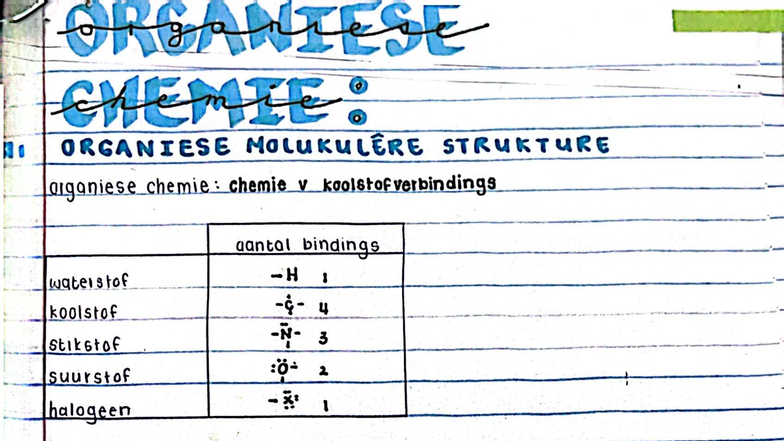 ORGANIESE
organiese
CHEMIE:
chemie
ORGANIESE MOLUKULÊRE STRUKTURE
organiese chemie: chemie v koolstofverbindings
aantal bindings
waterstof -H 1
koolstof -C- 4
stikstof -N- 3
suurstof :Ö- 2
halogeen -X: 1